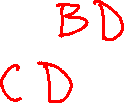 BD
CD